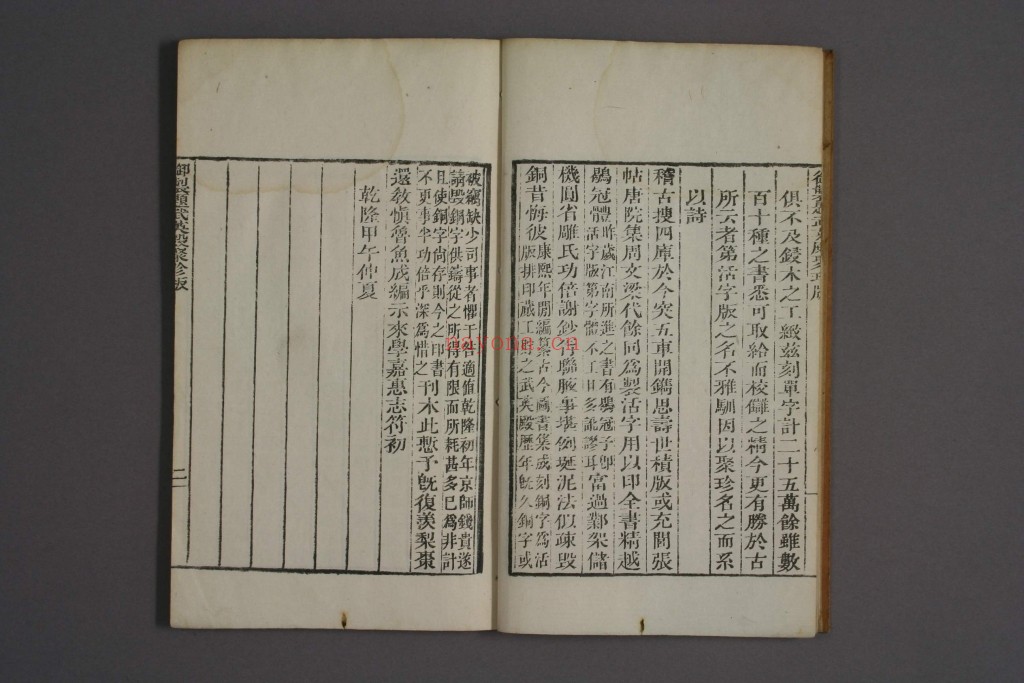 俱不及鋟木之工緻兹刻單字計二十五萬餘雖數
百十種之書悉可取給而校讎之精今更有勝於古
所云者第活字版之名不雅馴因以聚珍名之而系
以詩
稽古搜四庫於今突五車開鐫思壽世積版或充閭張
帖唐院集周文梁代餘同為製活字用以印全書精越
鶡冠體昨歲江南所進之書有鶡冠子即
活字版第字體不工且多訛謬耳富過鄴架儲
機圓省雕氏功倍謝鈔胥聯腋事堪例埏泥法似疎毀
銅昔悔彼康熙年間編纂古今圖書集成刻銅字為活
版排印蔵工貯之武英殿歷年既久銅字或
被竊缺少司事者懼干咎適值乾隆初年京師錢貴遂
請毀銅字供鑄從之所得有限而所耗甚多已為非計
且使銅字尚存則今之印書
不更事半功倍乎深為惜之刊木此慙予既復羨梨棗
還教慎魯魚成編示來學嘉惠志符初
乾隆甲午仲夏
御製題武英殿聚珍版
二